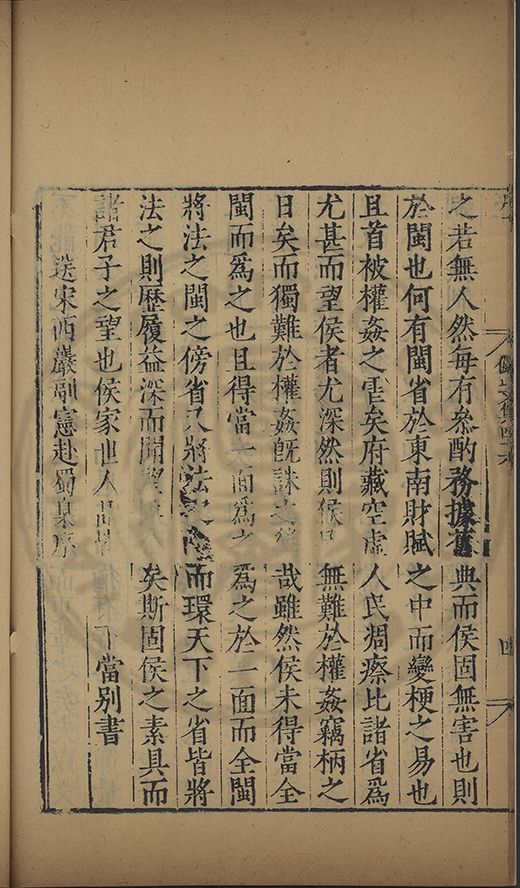 之若無人然每有參酌務據舊典而侯固無害也則
於閩也何有閩省於東南財賦之中而變梗之易也
且首被權姦之虐矣府藏空虛人民凋瘵比諸省爲
尤甚而望侯者尤深然則侯無難於權姦竊柄之
日矣而獨難於權姦旣誅之後哉雖然侯未得當全
閩而爲之也且得當一面爲之爲之於一面而全閩
將法之閩之傍省又將法之而環天下之省皆將
法之則歷履益深而聞望矣斯固侯之素具而
諸君子之望也侯家世人下當別書
送宋西巖副憲赴蜀臬序
四